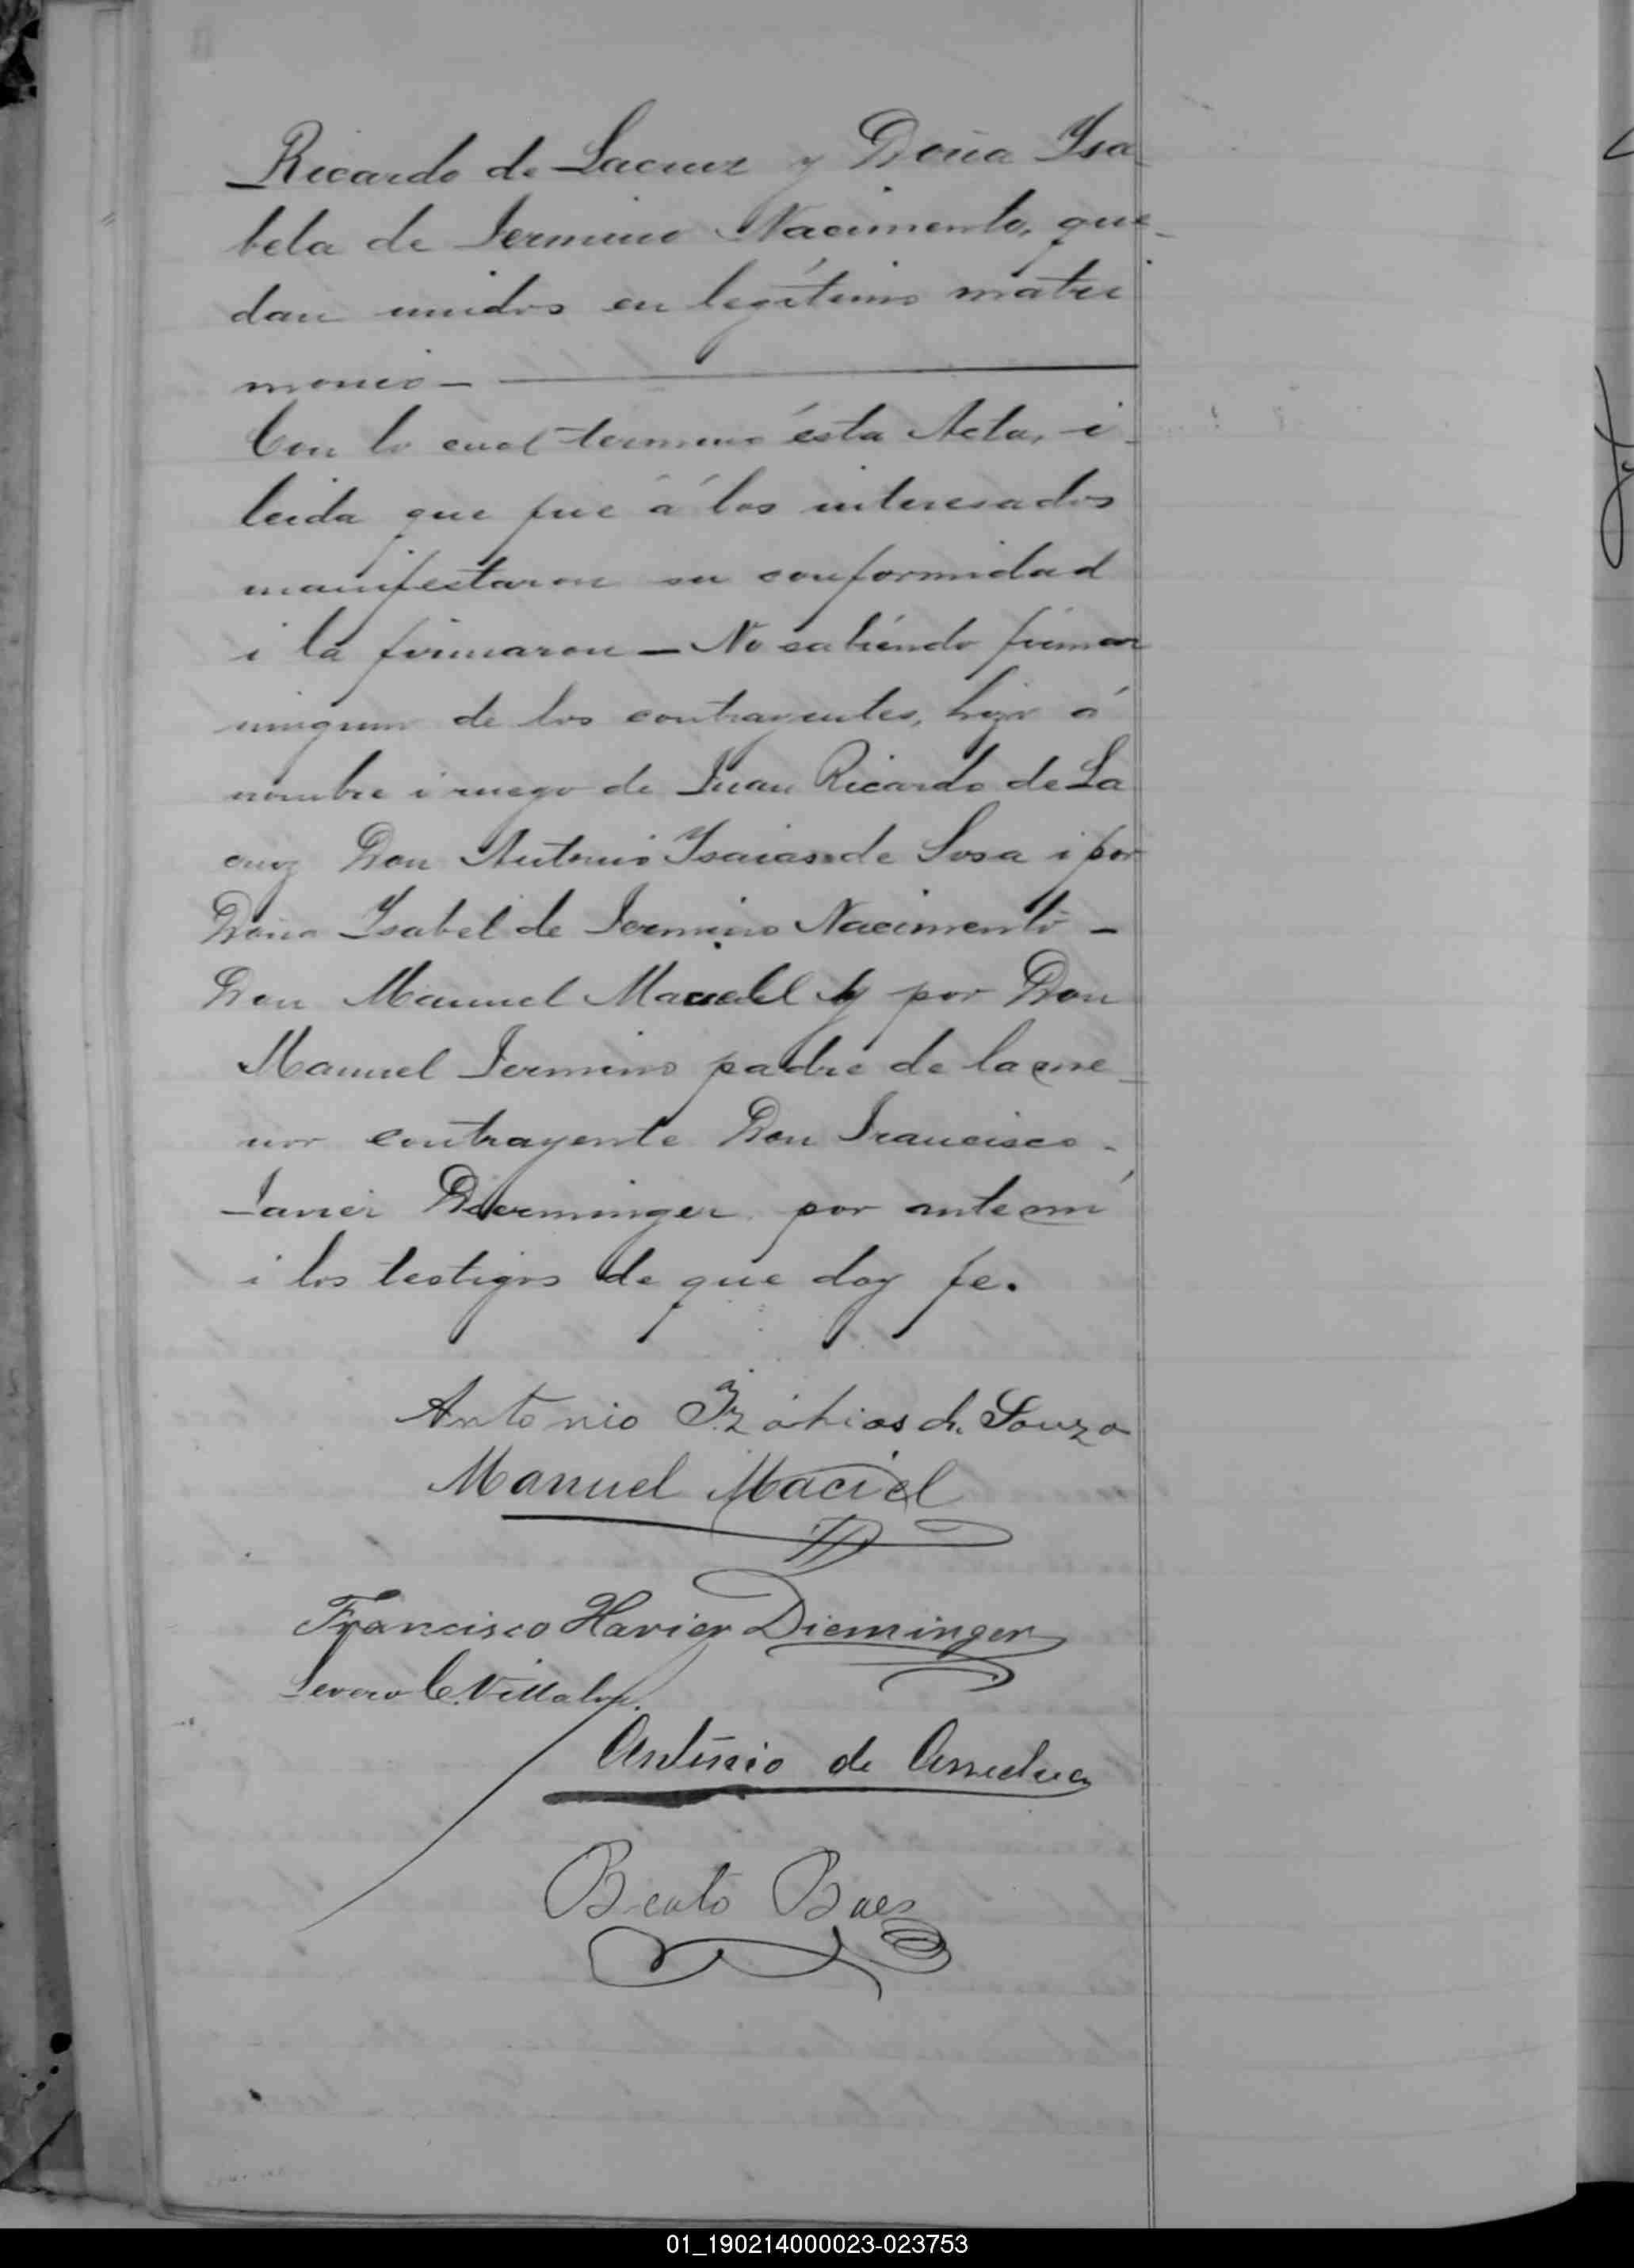 Ricardo de Lacruz y Doña Isa-
bela de Jermino Nacimento, que-
dan unidos en legítimo matri
monio —
Con lo cual termino ésta Acta, i
leida que fué á los interesados
manifestaron su conformidad
i la firmaron — No sabiéndo firmar
ninguno de los contrayentes, hizo á
nombre i ruego de Juan Ricardo de La
cruz Don Antonio Isaias de Sosa i por
Doña Isabel de Jermino Nacimento —
Don Manuel Maciel y por Don
Manuel Jermino padre de la me-
nor contrayente Don Francisco
Javier Dierminger, por ante mí
i los testigos de que doy fe.
Antonio de Souza
Manuel Maciel
Francisco Havier Dieminger
Severo C. Villalva.
Antonio de
Beato Baez
01_190214000023-023753